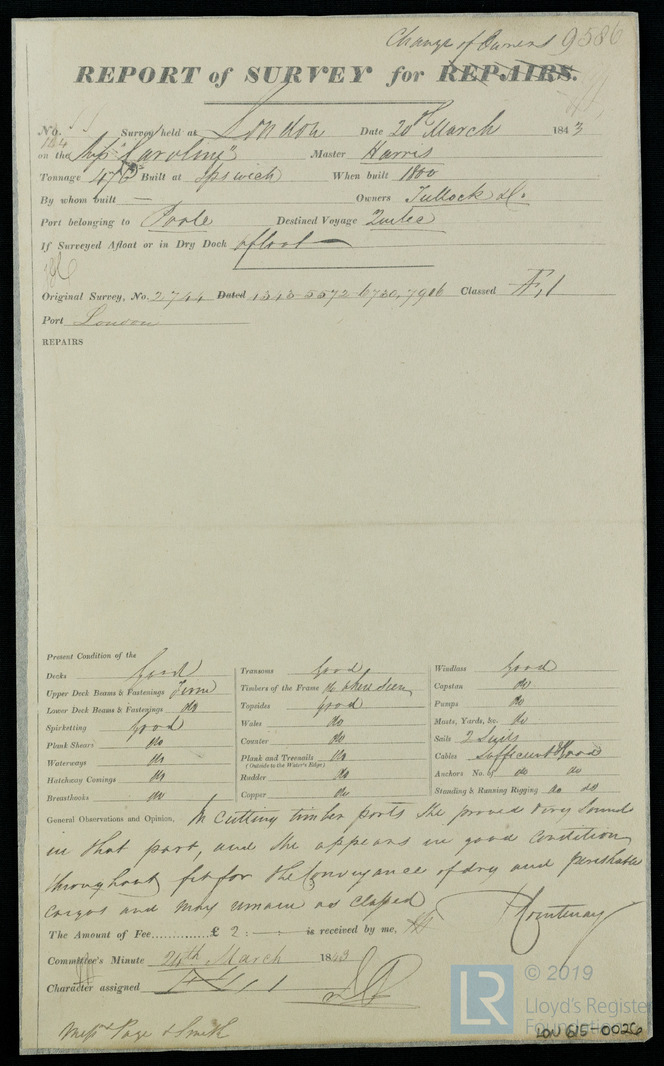 Change of Owners 9586
REPORT of SURVEY for REPAIRS.
No. Survey held at London Date 20th March 1843
on the Ship "Caroline" Master Harris
Tonnage Built at Ipswich When built 1800
By whom built — Owners Tullock & Co.
Port belonging to Poole Destined Voyage Quebec
If Surveyed Afloat or in Dry Dock afloat
Original Survey, No. 2744 Dated 1343-5572-6730, 7906 Classed Æ, 1
Port London
REPAIRS
Present Condition of the
Decks Good Transoms Good Windlass Good
Upper Deck Beams & Fastenings Firm Timbers of the Frame do where seen Capstan do
Lower Deck Beams & Fastenings do Topsides Good Pumps do
Spirketting Good Wales do Masts, Yards, &c. do
Plank Shears do Counter do Sails 2 Suits
Waterways do Plank and Treenails do Cables Sufficient & Good
(Outside to the Water's Edge)
Hatchway Comings do Rudder do Anchors No. of do do
Breasthooks do Copper do Standing & Running Rigging do do
General Observations and Opinion, In cutting timber ports she proved very sound
in that part, and she appears in good condition
throughout fit for the Conveyance of dry and perishable
cargos and may remain as classed
Courtenay
The Amount of Fee............£ 2 : - : - is received by me,
Committee's Minute 24th March 1843
Character assigned Æ 1
Messrs Page & Smith
LR © 2019
Lloyd's Register
Foundation
LON 615-0026